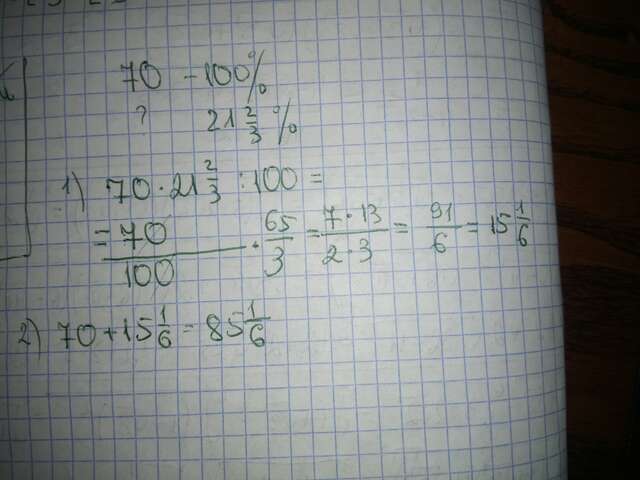 70 - 100%
? 21 2/3 %
1) 70 · 21 2/3 : 100 =
= 70/100 · 65/3 = 7·13/2·3 = 91/6 = 15 1/6
2) 70 + 15 1/6 = 85 1/6